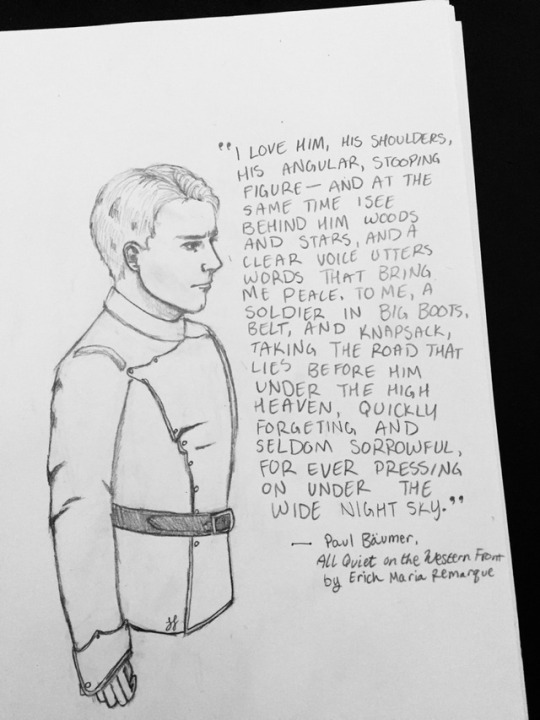 "I LOVE HIM, HIS SHOULDERS,
HIS ANGULAR, STOOPING
FIGURE — AND AT THE
SAME TIME I SEE
BEHIND HIM WOODS
AND STARS, AND A
CLEAR VOICE UTTERS
WORDS THAT BRING
ME PEACE. TO ME, A
SOLDIER IN BIG BOOTS,
BELT, AND KNAPSACK,
TAKING THE ROAD THAT
LIES BEFORE HIM
UNDER THE HIGH
HEAVEN, QUICKLY
FORGETING AND
SELDOM SORROWFUL,
FOR EVER PRESSING
ON UNDER THE
WIDE NIGHT SKY."
— Paul Bäumer,
All Quiet on the Western Front
by Erich Maria Remarque